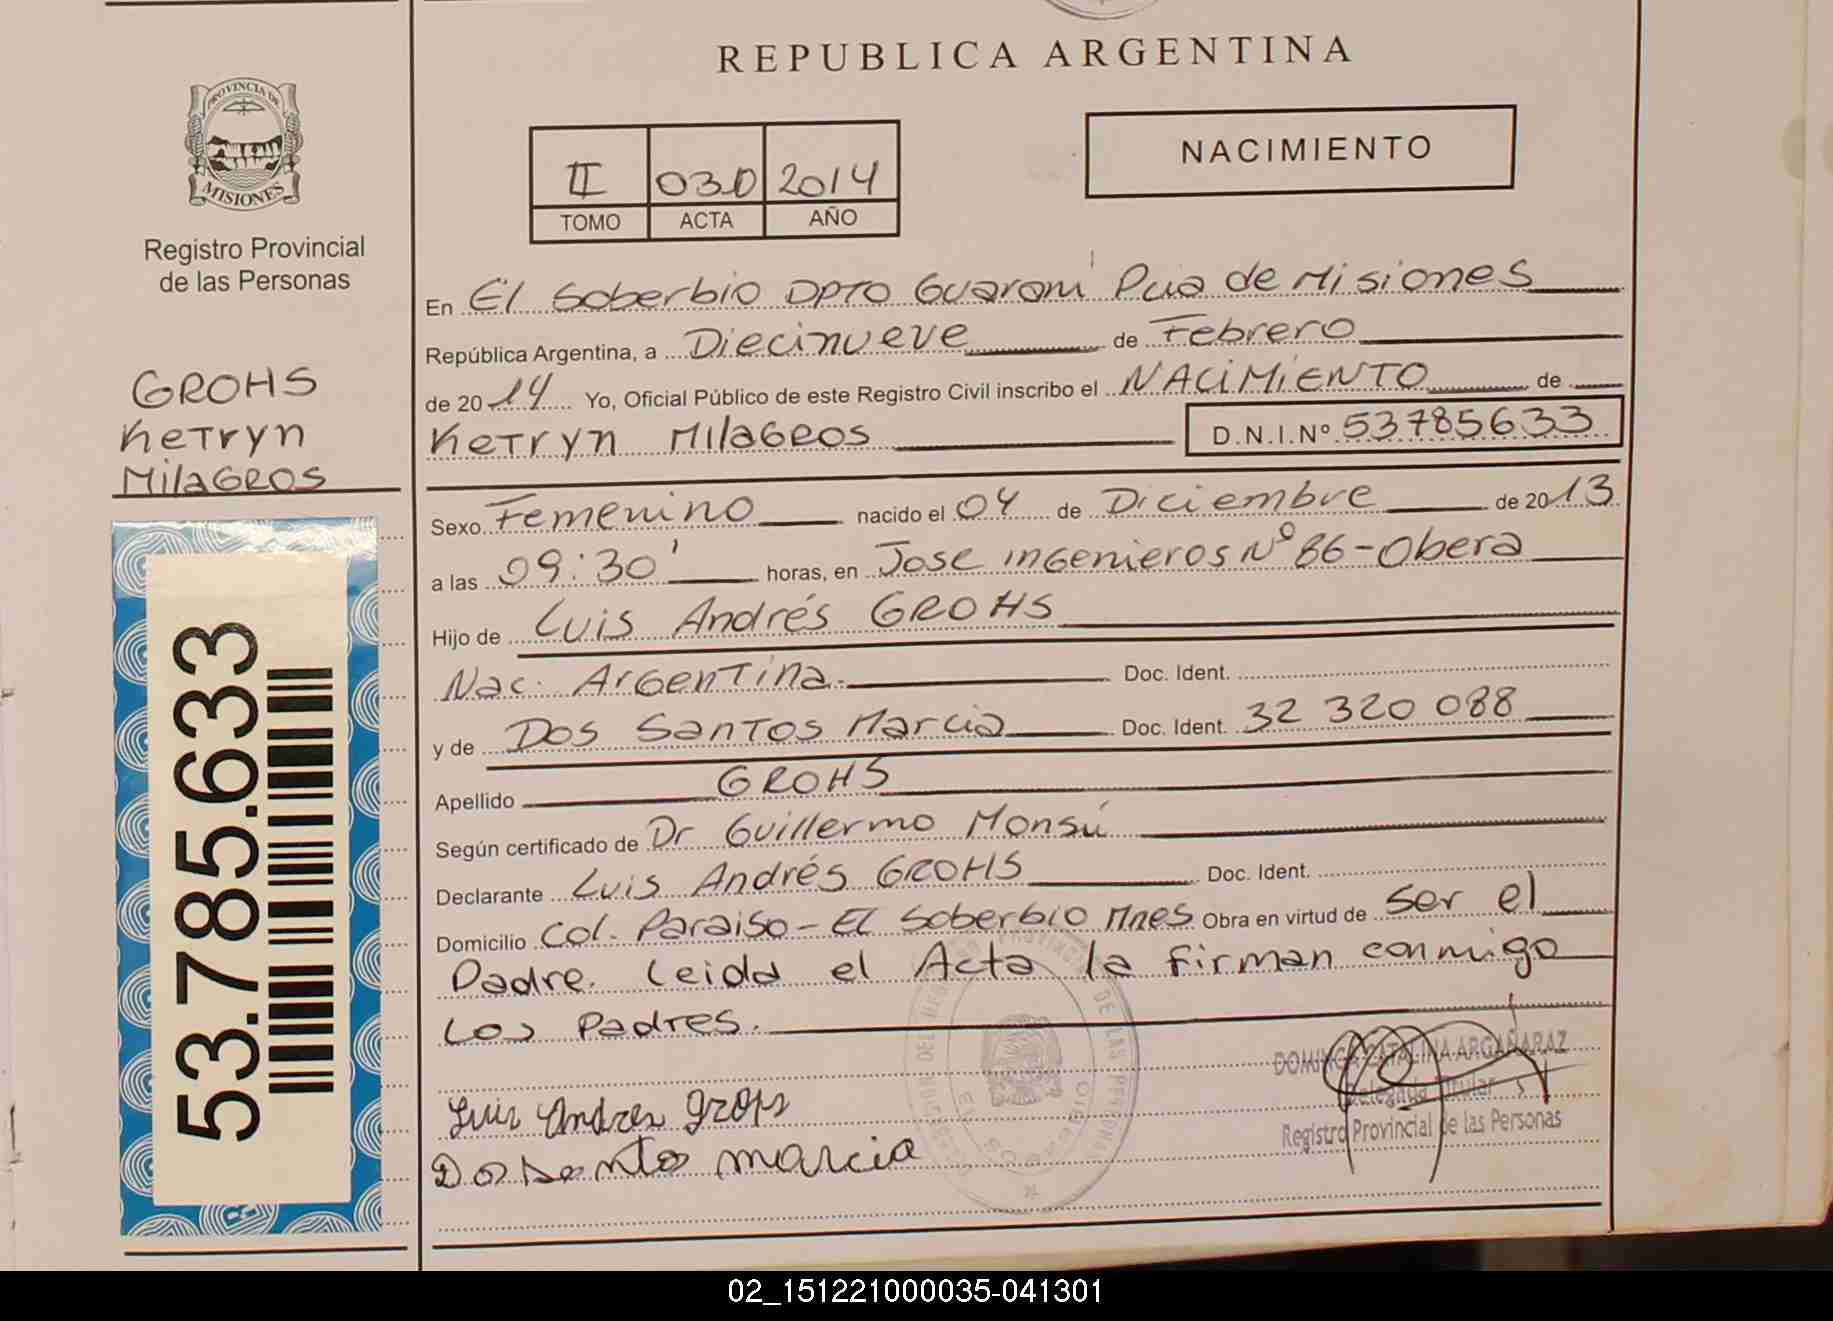 REPUBLICA ARGENTINA
PROVINCIA DE
MISIONES
Registro Provincial
de las Personas
NACIMIENTO
II 030 2014
TOMO ACTA AÑO
GROHS
Ketryn
Milagros
53.785.633
En El Soberbio DPTO Guaraní Pcia de Misiones
República Argentina, a Diecinueve de Febrero
de 2014 Yo, Oficial Público de este Registro Civil inscribo el NACIMIENTO de
Ketryn Milagros D.N.I.Nº 53785633
Sexo Femenino nacido el 04 de Diciembre de 2013
a las 09:30' horas, en Jose ingenieros Nº 86-Obera
Hijo de Luis Andrés GROHS
Nac. Argentina. Doc. Ident.
y de Dos Santos Marcia Doc. Ident. 32 320 088
Apellido GROHS
Según certificado de Dr Guillermo Monsú
Declarante Luis Andrés GROHS Doc. Ident.
Domicilio Col. Paraiso - El Soberbio Mnes Obra en virtud de ser el
Padre. Leida el Acta la firman conmigo
Los Padres.
DOMINGA CATALINA ARGAÑARAZ
Delegada Titular
Registro Provincial de las Personas
Luis Andres grops
Dos Santo marcia
DE LAS PERSONAS
EL SOBERBIO
02_151221000035-041301